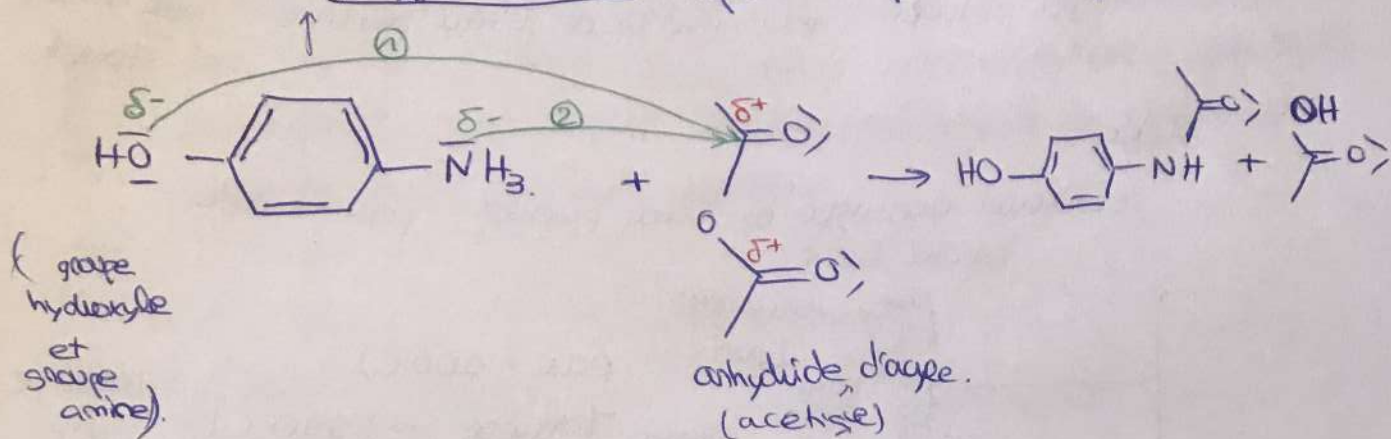 ①
δ- δ- ② δ+
HO NH3. + O → HO NH O + OH O
O
δ+
O
( groupe
hydroxyle
et
groupe
amine).
anhydride d'acyle.
(acetique)